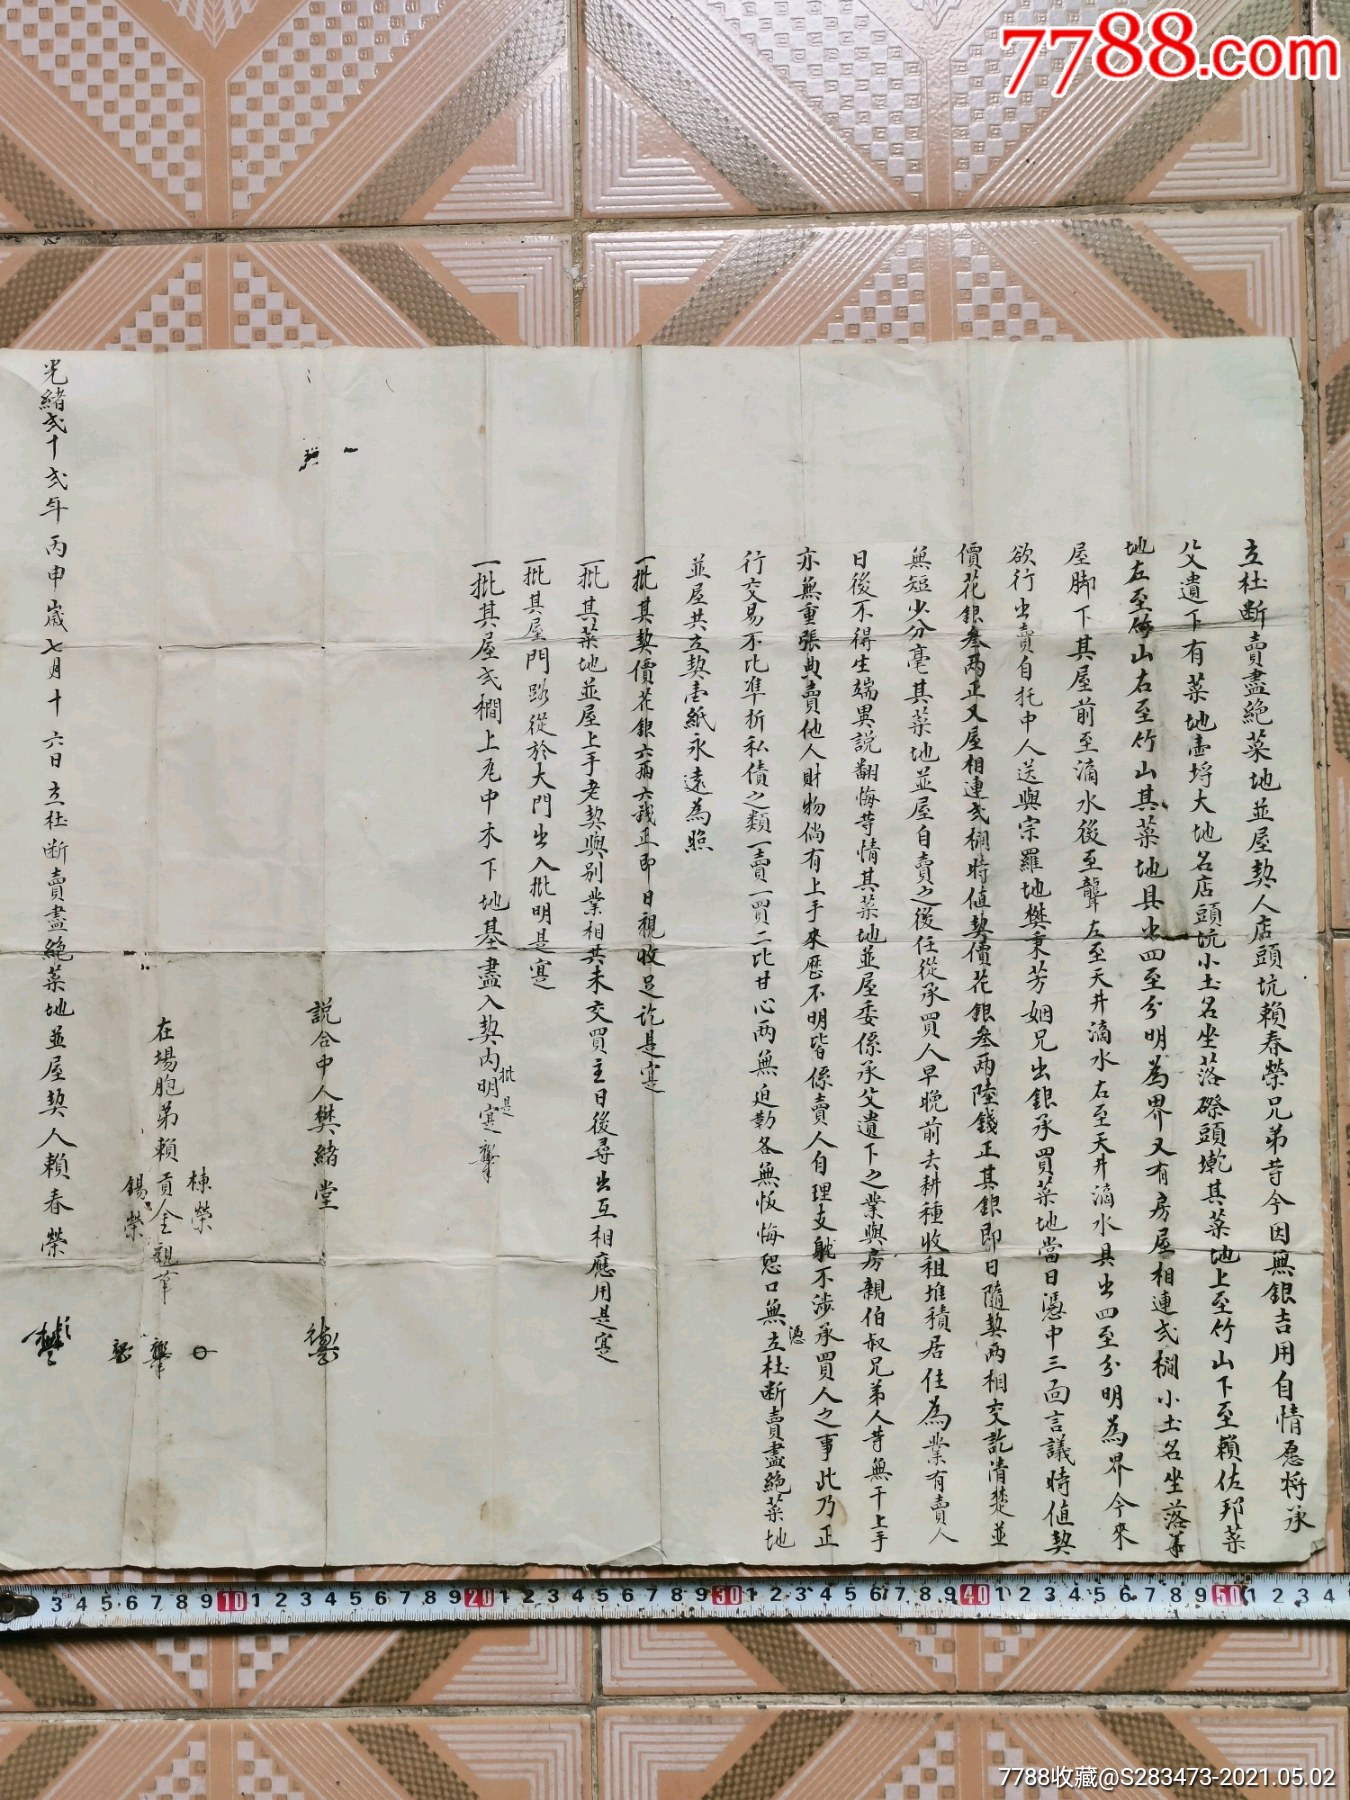 7788.com
立杜断賣盡絕菜地並屋契人店頭坑賴春榮兄弟等今因無銀吉用自情愿将承
父遺下有菜地壹垺大地名店頭坑小土名坐落磜頭墘其菜地上至竹山下至賴佐邦菜
地左至竹山右至竹山其菜地具出四至分明為界又有房屋相連弍棡小土名坐落
屋脚下其屋前至滴水後至龔左至天井滴水右至天井滴水具出四至分明為界今來
欲行出賣自托中人送與宗羅地樊秉芳姻兄出銀承買菜地當日憑中三面言議時值契
價花銀叁两正又屋相連弍棡時值契價花銀叁两陸錢正其銀即日隨契两相交訖清楚並
無短少分毫其菜地並屋自賣之後任從承買人早晚前去耕種收租堆積居住為業有賣人
日後不得生端異說翻悔等情其菜地並屋委係承父遺下之業與房親伯叔兄弟人等無干上手
亦無重張典賣他人財物倘有上手來歷不明皆係賣人自理支觝不涉承買人之事此乃正
行交易不比準折私債之類一賣一買二比甘心两無迫勒各無忄反悔恐口無憑立杜断賣盡絕菜地
並屋共立契壹紙永遠為照
一批其契價花銀六两六錢正即日親收足訖是寔
一批其菜地並屋上手老契與别業相共未交買主日後尋出互相應用是寔
一批其屋門路從於大門出入批明是寔
一批其屋弍棡上瓦中木下地基盡入契内明寔
批是
說合中人樊緒堂
棟榮
在塲胞弟賴貢金親筆
錫榮
光緒弍十弍年丙申歲七月十六日立杜断賣盡絕菜地並屋契人賴春榮
3 4 5 6 7 8 9 10 1 2 3 4 5 6 7 8 9 20 1 2 3 4 5 6 7 8 9 30 1 2 3 4 5 6 7 8 9 40 1 2 3 4 5 6 7 8 9 50 1 2 3 4
7788收藏@S283473-2021.05.02